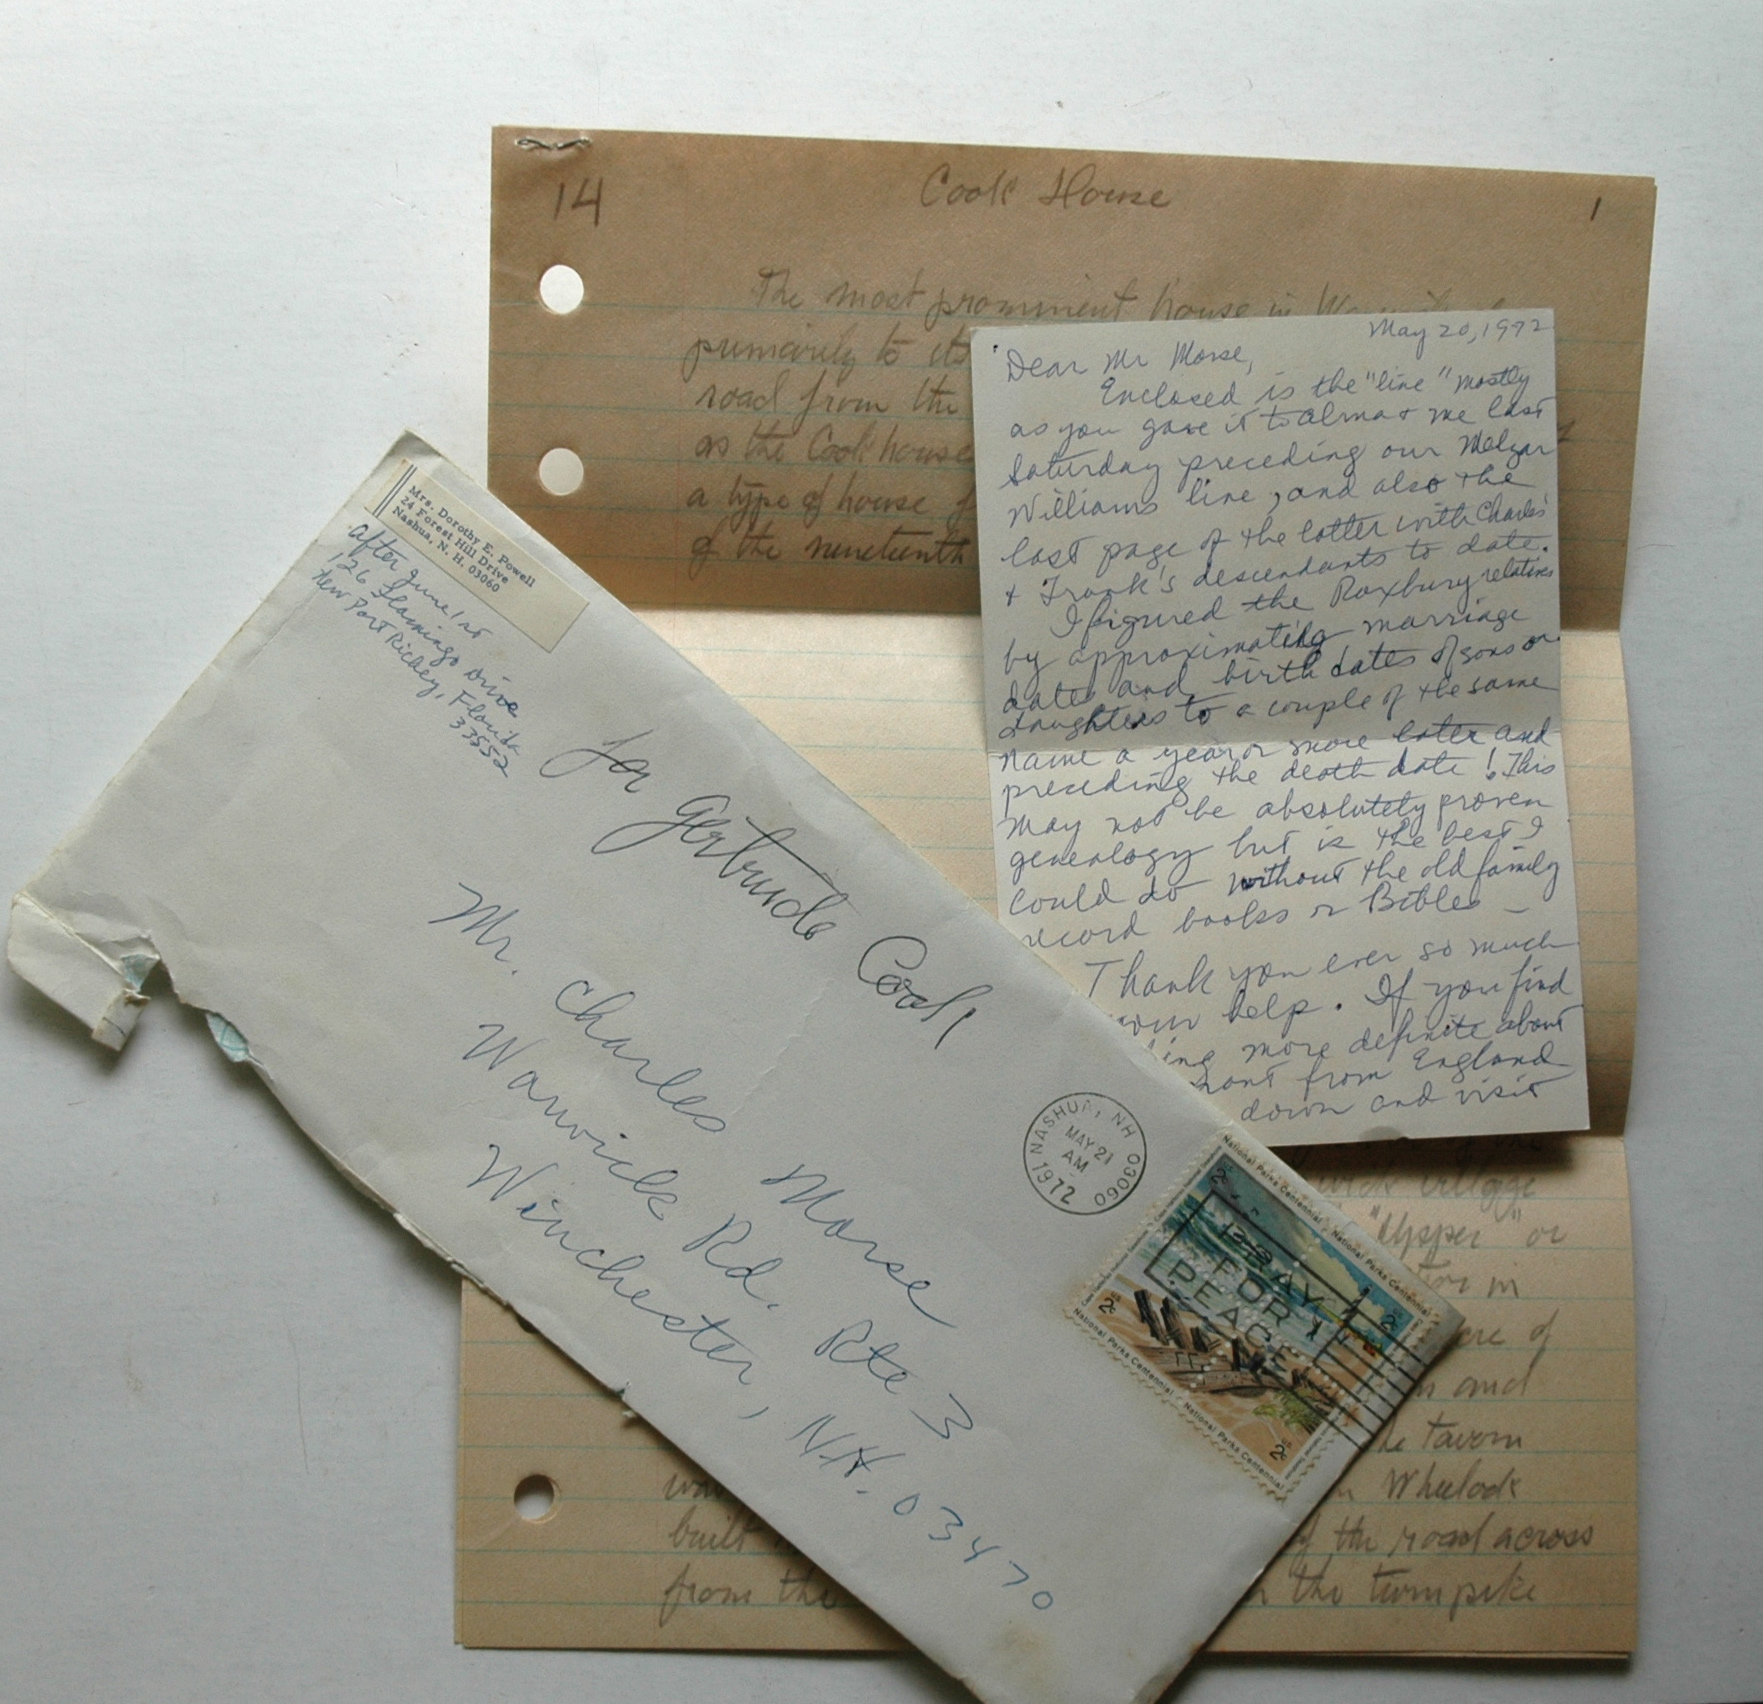 14
Cook House
1
The most prominent house in
primarily to its
road from the
as the Cook house
a type of house
of the nineteenth
May 20, 1972
Dear Mr Morse,
Enclosed is the "line" mostly
as you gave it to Alma + me last
Saturday preceding our Melzar
Williams line, and also the
last page of the latter with Charles'
+ Frank's descendants to date.
I figured the Roxbury relatives
by approximating marriage
dates and birth dates of sons or
daughters to a couple of the same
name a year or more later and
preceding the death date! This
may not be absolutely proven
genealogy but is the best I
could do without the old family
record books or Bibles —
Thank you ever so much
your help. If you find
more definite about
from England
down and visit
Mrs. Dorothy E. Powell
24 Forest Hill Drive
Nashua, N. H. 03060
after June 1st
126 Flamingo Drive
New Port Richey, Florida
33552
for Gertrude Cook
Mr. Charles Morse
Warwick Rd. Rte 3
Winchester, NH. 03470
NASHUA, NH 03060
MAY 21
AM
1972
PRAY
FOR
PEACE
National Parks Centennial
National Parks Centennial
National Parks Centennial
National Parks Centennial
2c
2c
2c
2c
village
"Upper" or
in
of
and
tavern
Wheelock
built
of the road across
from the
the turnpike